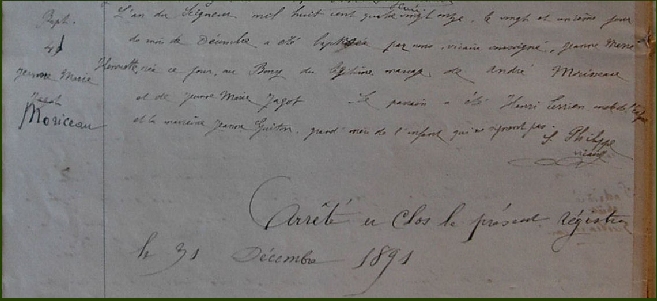 Bapt.
41
Jeanne Marie
Jagot
Moriceau
L'an du Seigneur mil huit cent quatre vingt onze, le vingt et unième jour
du mois de Décembre a été baptisée par nous, vicaire soussigné, Jeanne Marie
Henriette, née ce jour, au Bourg du légitime mariage de André Moriceau
et de Jeanne Marie Jagot Le parrain a été Henri Terrien
et la marraine Jeanne Guiton, grand'mère de l'enfant qui ne signent pas.
J. Philippe
vicaire
Arrêté et Clos le présent régistre
le 31 Décembre 1891